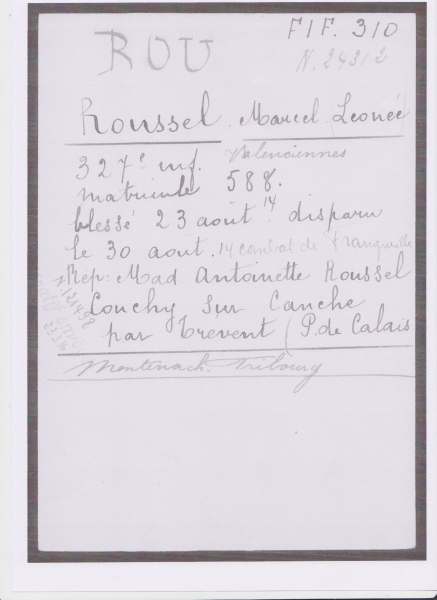 ROU
FIF. 310
N. 24312
Roussel. Marcel (Léonce)
327e inf. Valenciennes
matricule 588.
blessé 23 août 14 disparu
le 30 août. 14 combat de
Rep: Mad Antoinette Roussel
Conchy sur Canche
par Frevent (P. de Calais
Montenach. Fribourg